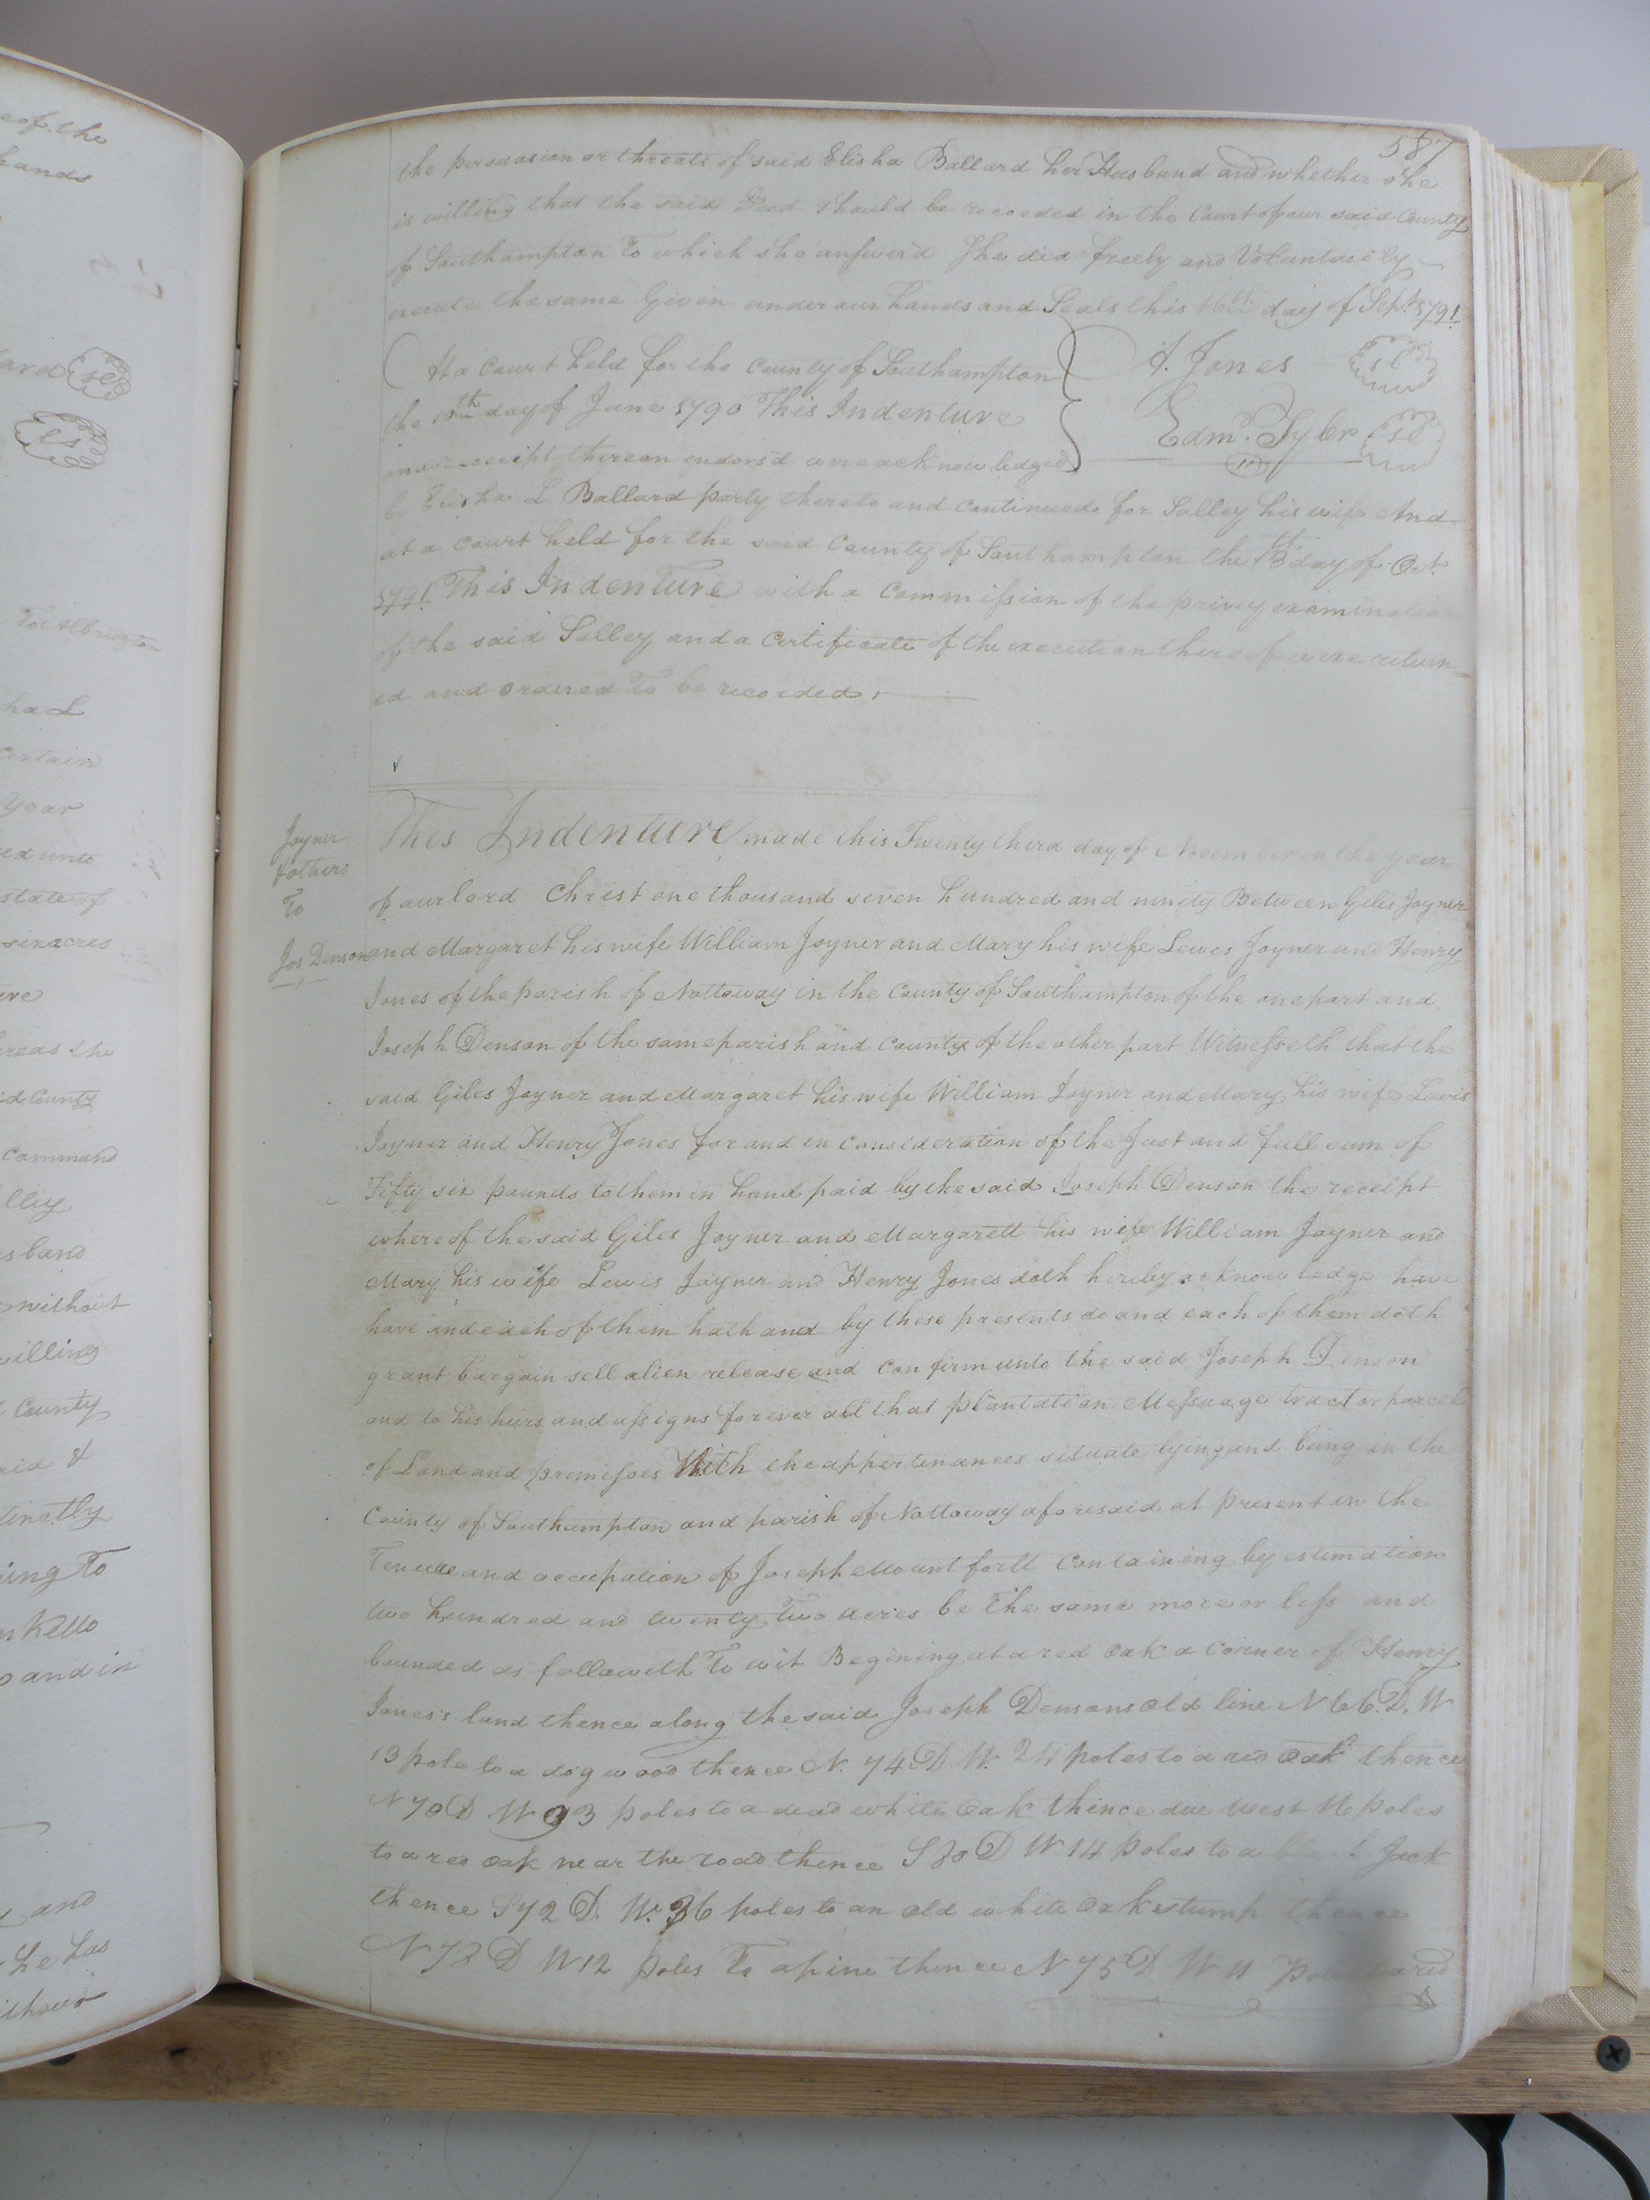 587
the persuasion or threats of said Elisha Ballard her Husband and whether she
is willing that the said Deed should be recorded in the Court of our said County
of Southampton To which she answer'd She did freely and Voluntarily
execute the same Given under our hands and Seals this 16th day of Sept. 1791.
At a Court held for the County of Southampton
the 10th day of June 1790 This Indenture
and receipt thereon endors'd were acknowledged
A. Jones sl
Edmd. Tyler sl
by Elisha L Ballard party thereto and continued for Salley his wife And
at a Court held for the said County of Southampton the 13th day of Oct.
1791. This Indenture with a Commission of the privy examination
of the said Salley and a Certificate of the execution thereof were return
ed and ordered To be recorded.
Joyner
& others
To
Jos Denson
This Indenture made this Twenty third day of November in the year
of our lord Christ one thousand seven hundred and ninety Between Giles Joyner
and Margaret his wife William Joyner and Mary his wife Lewis Joyner and Henry
Jones of the parish of Nottoway in the County of Southampton of the one part and
Joseph Denson of the same parish and County of the other part Witnesseth that the
said Giles Joyner and Margaret his wife William Joyner and Mary his wife Lewis
Joyner and Henry Jones for and in Consideration of the Just and full sum of
Fifty six pounds to them in hand paid by the said Joseph Denson the receipt
whereof the said Giles Joyner and Margarett his wife William Joyner and
Mary his wife Lewis Joyner and Henry Jones doth hereby acknowledge have
have and each of them hath and by these presents do and each of them doth
grant bargain sell alien release and confirm unto the said Joseph Denson
and to his heirs and assigns forever all that plantation Messuage tract or parcel
of Land and premisses With the appertenances situate lying and being in the
County of Southampton and parish of Nottoway aforesaid at present in the
Tenure and occupation of Joseph Mountfortt Containing by estimation
two hundred and twenty two acres be the same more or less and
bounded as followeth To wit Begining at a red oak a corner of Henry
Jones's land thence along the said Joseph Densons old line N 66. D. W
13 pole to a dogwood thence N. 74 D. W. 24 poles to a red oak thence
N 70 D W 93 poles to a dead white oak thence due west 16 poles
to a red oak near the road thence S 80 D W 14 poles to a black Jack
thence S 72 D. W. 36 poles to an old white oak stump thence
N 73 D W 12 poles To a pine thence N 75 D W 11 Poles to a red